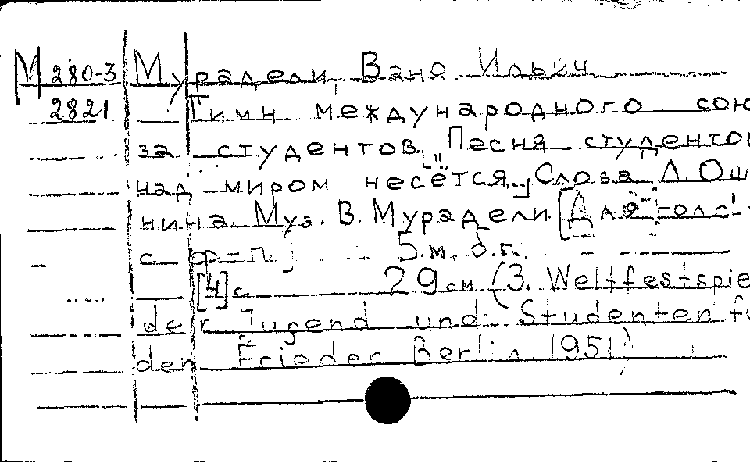 М 280-3 Мурадели, Вано Ильич
2821 Гимн международного сою
за студентов „Песня студентов
над миром несётся„ Слова Л. Оша
нина. Муз. В. Мурадели [Для голоса
с ф-п.] Б.м. б.г.
[4] с. 29 см (3. Weltfestspie
der Jugend und Studenten fü
den Frieden Berlin 1951)